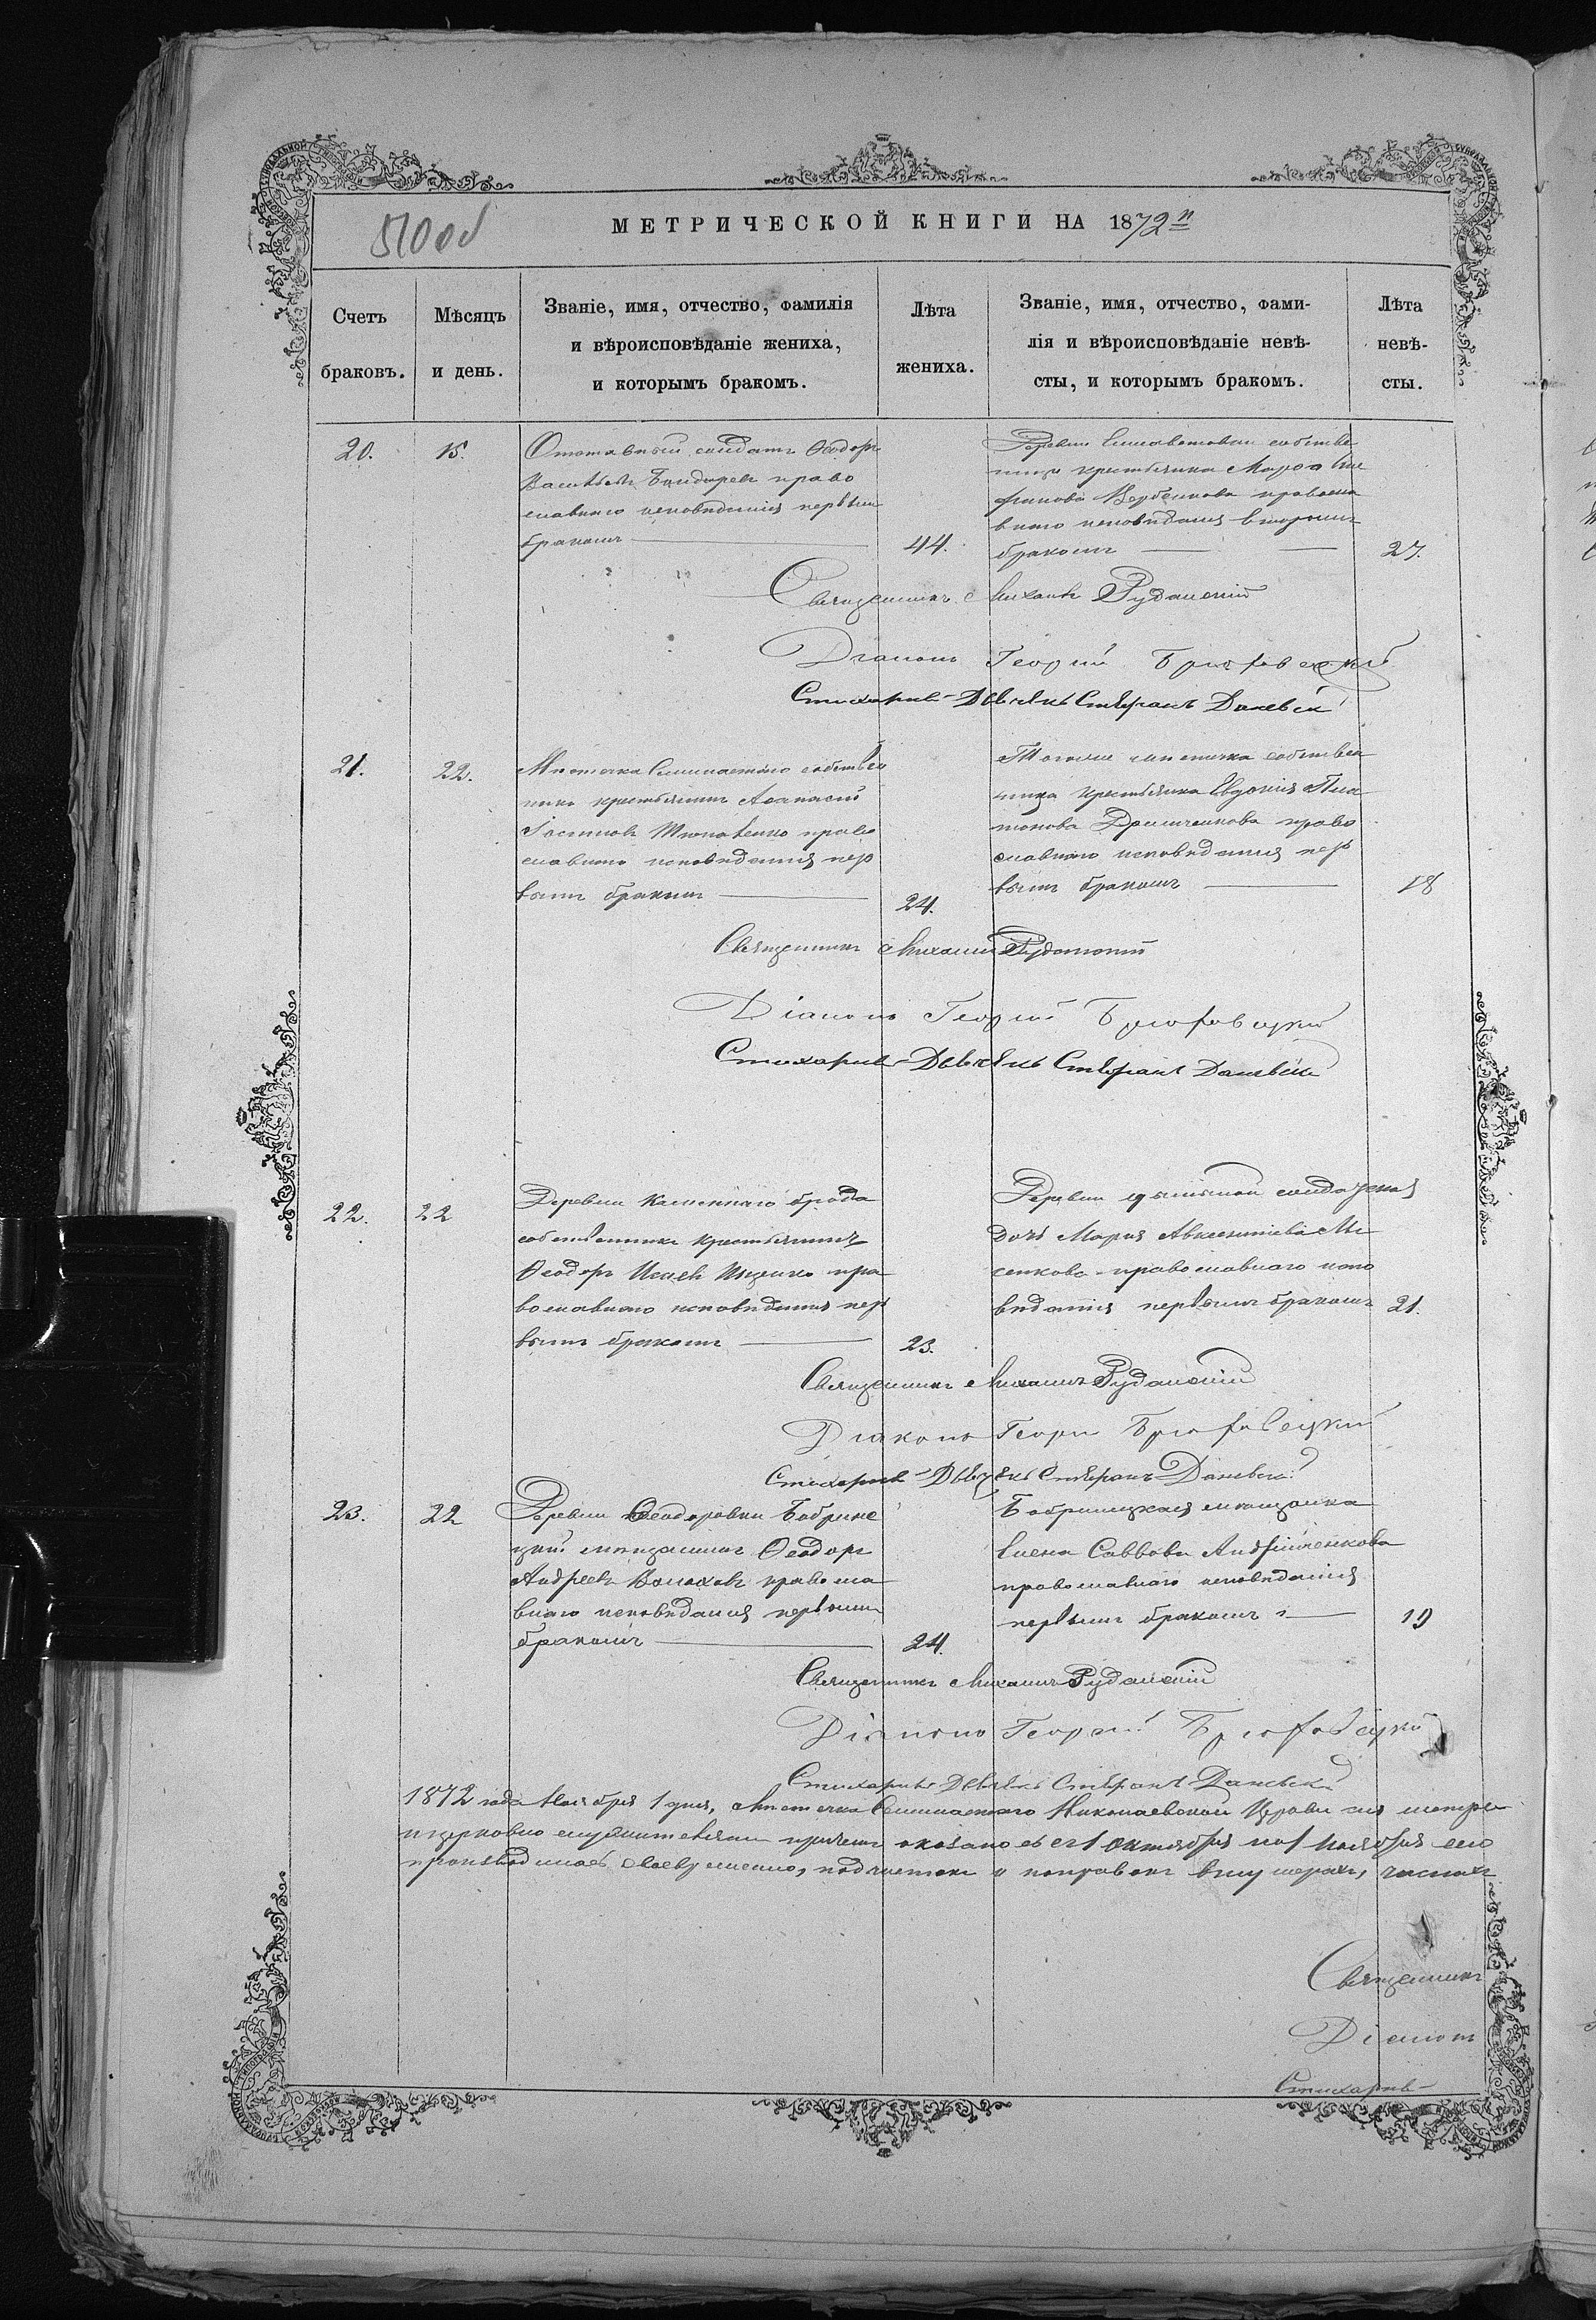 510 об
МЕТРИЧЕСКОЙ КНИГИ НА 1872й
Счетъ браковъ.
Мѣсяцъ и день.
Званіе, имя, отчество, фамилія
и вѣроисповѣданіе жениха,
и которымъ бракомъ.
Лѣта жениха.
Званіе, имя, отчество, фами-
лія и вѣроисповѣданіе невѣ-
сты, и которымъ бракомъ.
Лѣта невѣ-
сты.
20. 15.
Отставный солдатъ Ѳеодоръ
Васильевъ Бондаревъ право
славнаго исповѣданія первымъ
бракомъ
44.
Деревни Елисаветовки собствен
ница крестьянка Марѳа
Вербенкова правосла
внаго исповѣданія вторымъ
бракомъ
27.
Священникъ Михаилъ Рудановскій
Діаконъ Георгій Брюховецкій
Стихарный Дьячекъ Стефанъ Даневскій
21. 22.
Мѣстечка собствен
никъ крестьянинъ Аѳанасій
право
славнаго исповѣданія пер
вымъ бракомъ
24.
Тогоже мѣстечка собствен
ница крестьянка Евдокія Пла
тонова право
славнаго исповѣданія пер
вымъ бракомъ
18
Священникъ Михаилъ Рудановскій
Діаконъ Георгій Брюховецкій
Стихарный Дьячекъ Стефанъ Даневскій
22. 22
Деревни Каменнаго брода
собственникъ крестьянинъ
Ѳеодоръ Ищенко пра
вославнаго исповѣданія пер
вымъ бракомъ
23.
Деревни солдатская
дочь Марія Авксентіева Ми
сенкова православнаго испо
вѣданія первымъ бракомъ
21.
Священникъ Михаилъ Рудановскій
Діаконъ Георгій Брюховецкій
Стихарный Дьячекъ Стефанъ Даневскій
23. 22
Деревни Ѳеодоровки Бобрине
цкій мѣщанинъ Ѳеодоръ
Андреевъ Волоховъ правосла
внаго исповѣданія первымъ
бракомъ
24.
Бобринецкая мѣщанка
Елена Саввова Андрійченкова
православнаго исповѣданія
первымъ бракомъ
19
Священникъ Михаилъ Рудановскій
Діаконъ Георгій Брюховецкій
Стихарный Дьячекъ Стефанъ Даневскій
1872 года Ноября 1 дня, мѣстечка Николаевской Церкви
съ 1 Октября по 1 Ноября
своевременно, подчистокъ и поправокъ въ нумерахъ, числахъ
Священникъ
Діаконъ
Стихарный